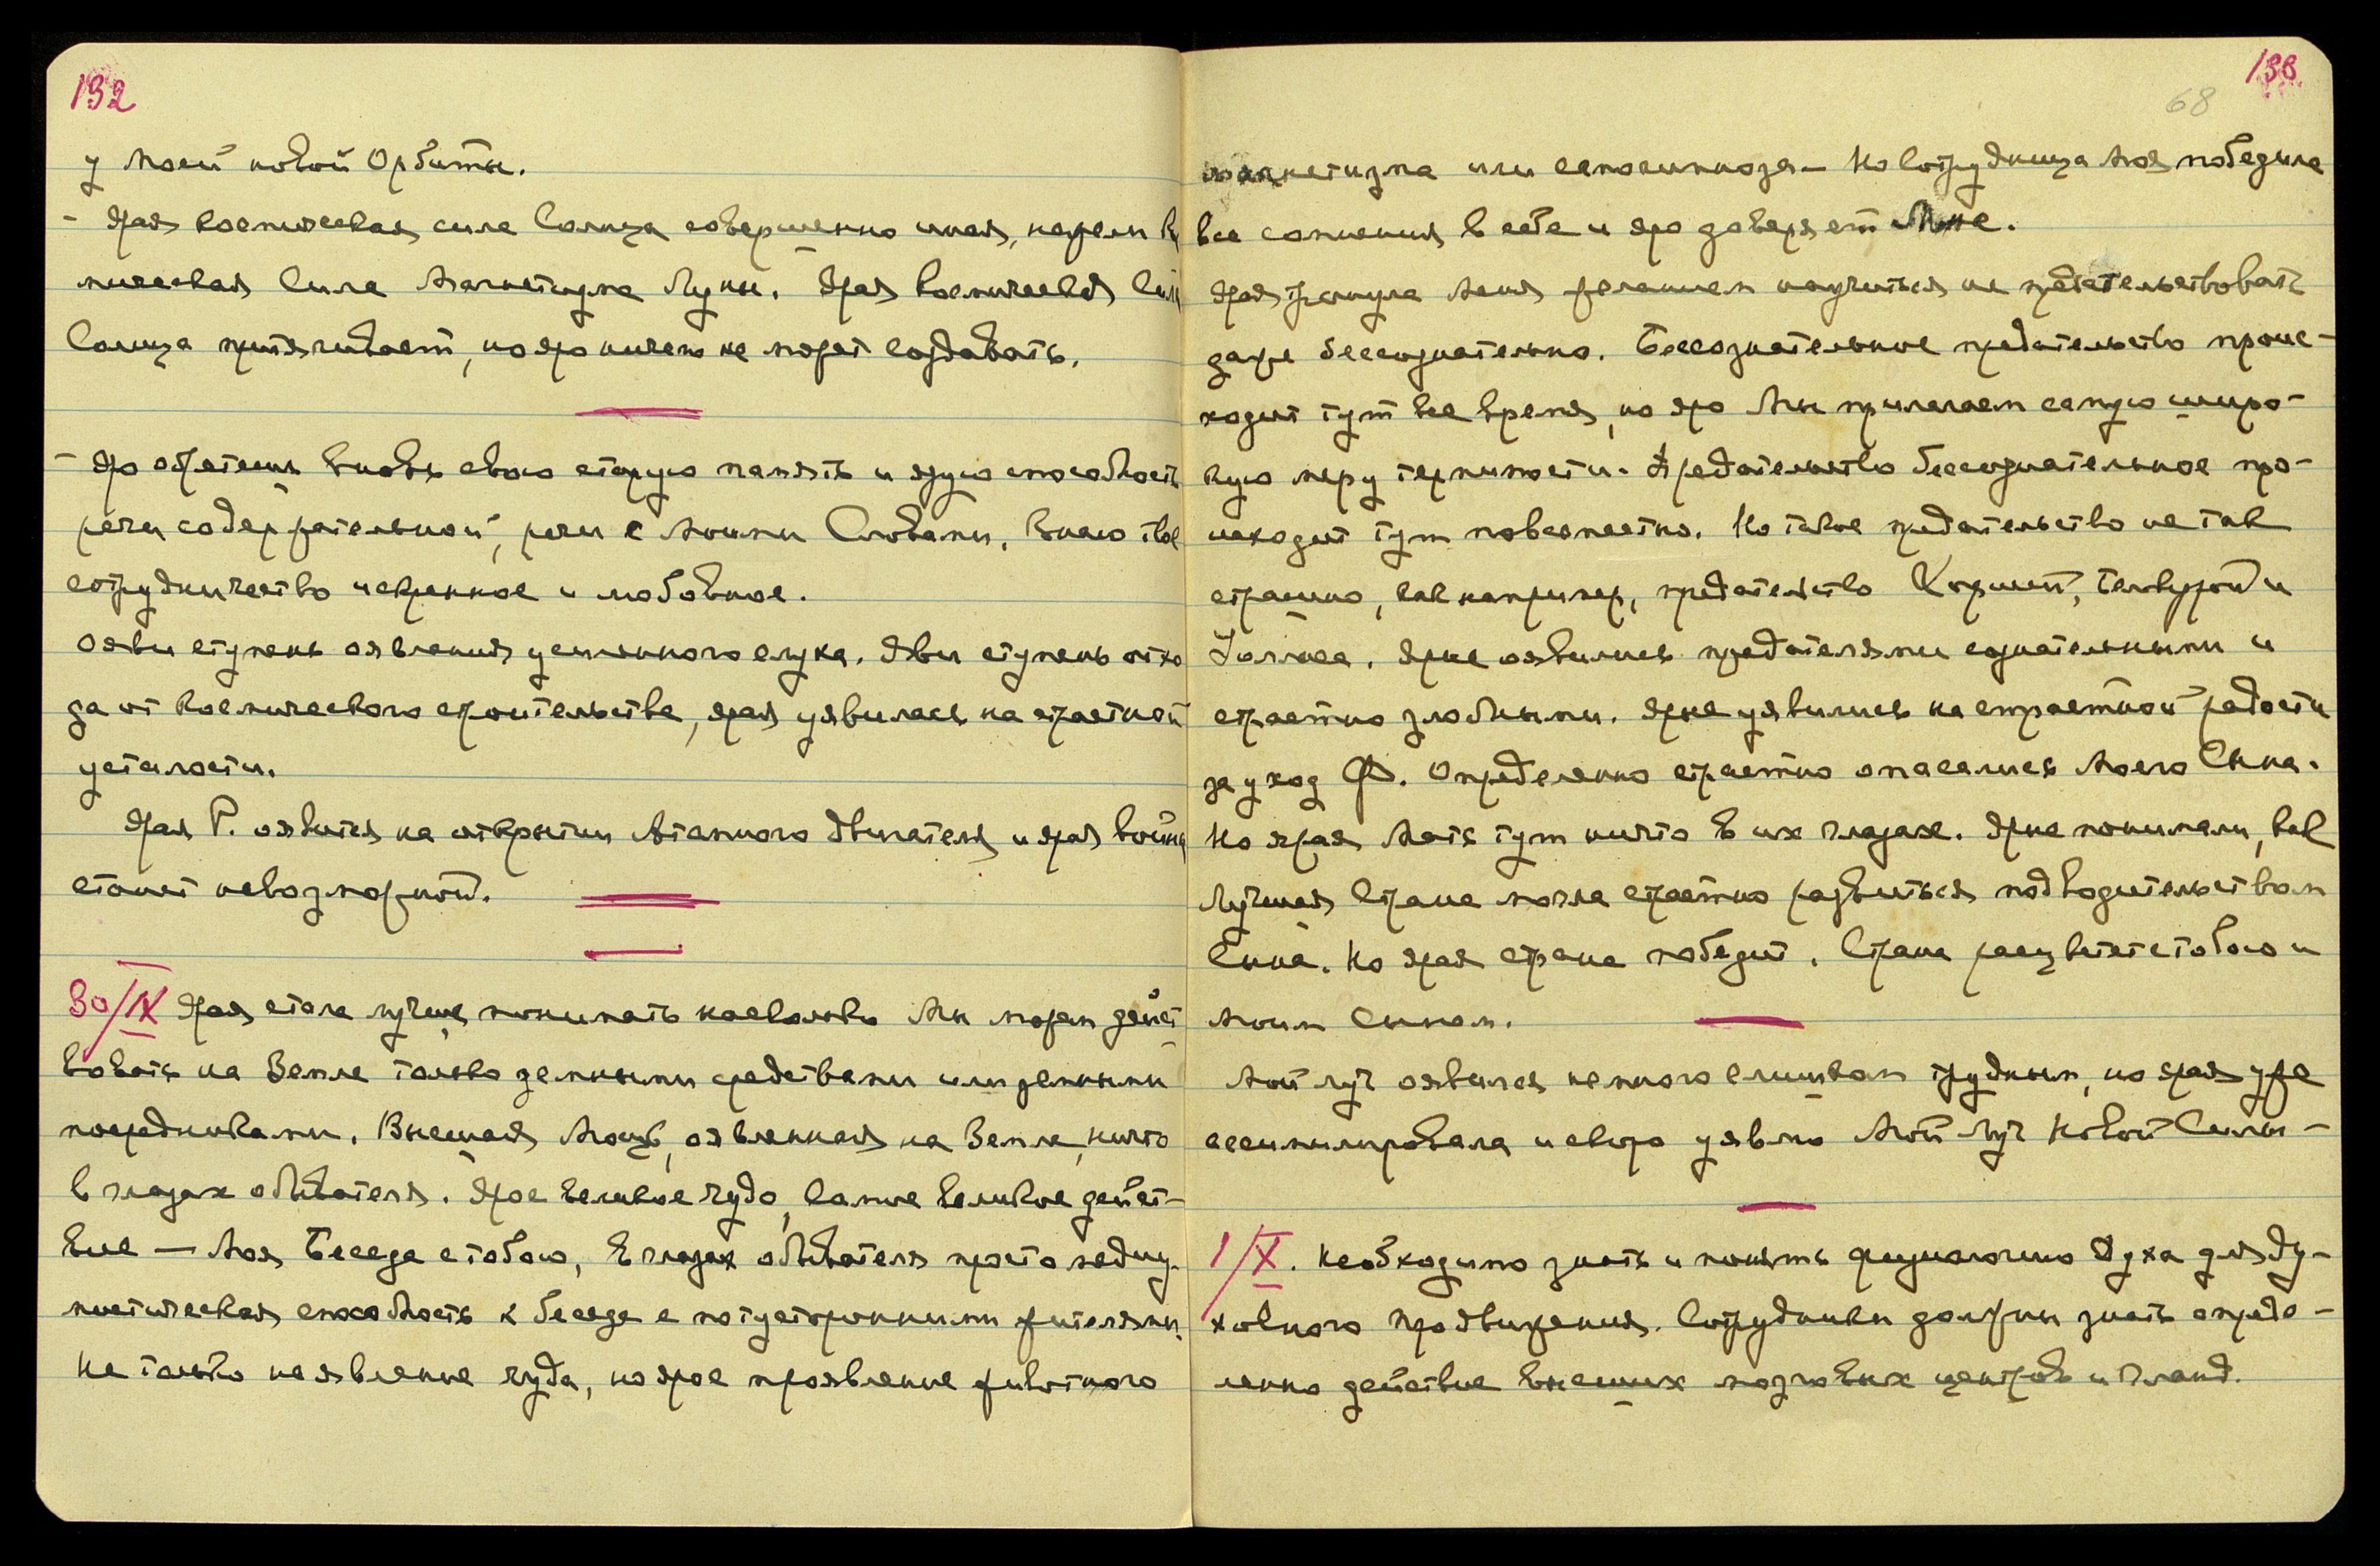 132
у Моей новой Орбиты.
- Ярая космическая сила Солнца совершенно иная, нежели Кос
мическая Сила Магнетизма Луны. Ярая космическая Сила
Солнца притягивает, но яро ничего не может создавать.
- Яро обретешь вновь свою старую память и ярую способность
речи содержательной, речи с Моими Словами. Знаю твое
сотрудничество искреннее и любовное.
Ояви ступень оявления усиленного слуха. Яви ступень отхо
да от космического строительства, ярая уявилась на страстной
усталости.
Ярая Р. оявится на открытии Атамного двигателя и ярая война
станет невозможной.
30/IX Ярая стала лучше понимать насколько Мы можем дейст
вовать на Земле только земными средствами или земными
посредниками. Высшая Мощь, оявленная на Земле, ничто
в глазах обывателя. Ярое великое чудо, самое великое дейст-
вие — Моя Беседа с тобою, в глазах обывателя просто медиу-
мистическая способность к беседе с потусторонними жителями.
Не только не явление чуда, но ярое проявление животного
133
68
магнетизма или самогипноза - Но Сотрудница Моя победила
все сомнения в себе и яро доверяет Мне.
Ярая тронула Меня желанием научиться не предательствовать
даже бессознательно. Бессознательное предательство проис-
ходит тут все время, но яро Мы прилагаем самую широ-
кую меру терпимости. Предательство бессознательное про-
исходит тут повсеместно. Но такое предательство не так
страшно, как например, предательство Хоршей, Белокурой и
Уоллеса. Ярые оявились предателями сознательными и
страстно злобными. Ярые уявились на страстной радости
за уход Ф. Определенно страстно опасались Моего Сына.
Но ярая Мать тут ничто в их глазах. Ярые понимали, как
Лучшая Страна могла страстно развиться под водительством
Сына. Но ярая страна победит. Страна расцветет с тобою и
Моим Сыном.
Мой луч оявился немного слишком трудным, но ярая уже
ассимилировала и скоро уявлю Мой Луч Новой Силы -
1/X. Необходимо знать и понять физиологию Духа для ду-
ховного продвижения. Сотрудники должны знать опреде-
ленно действие высших мозговых центров и гланд.